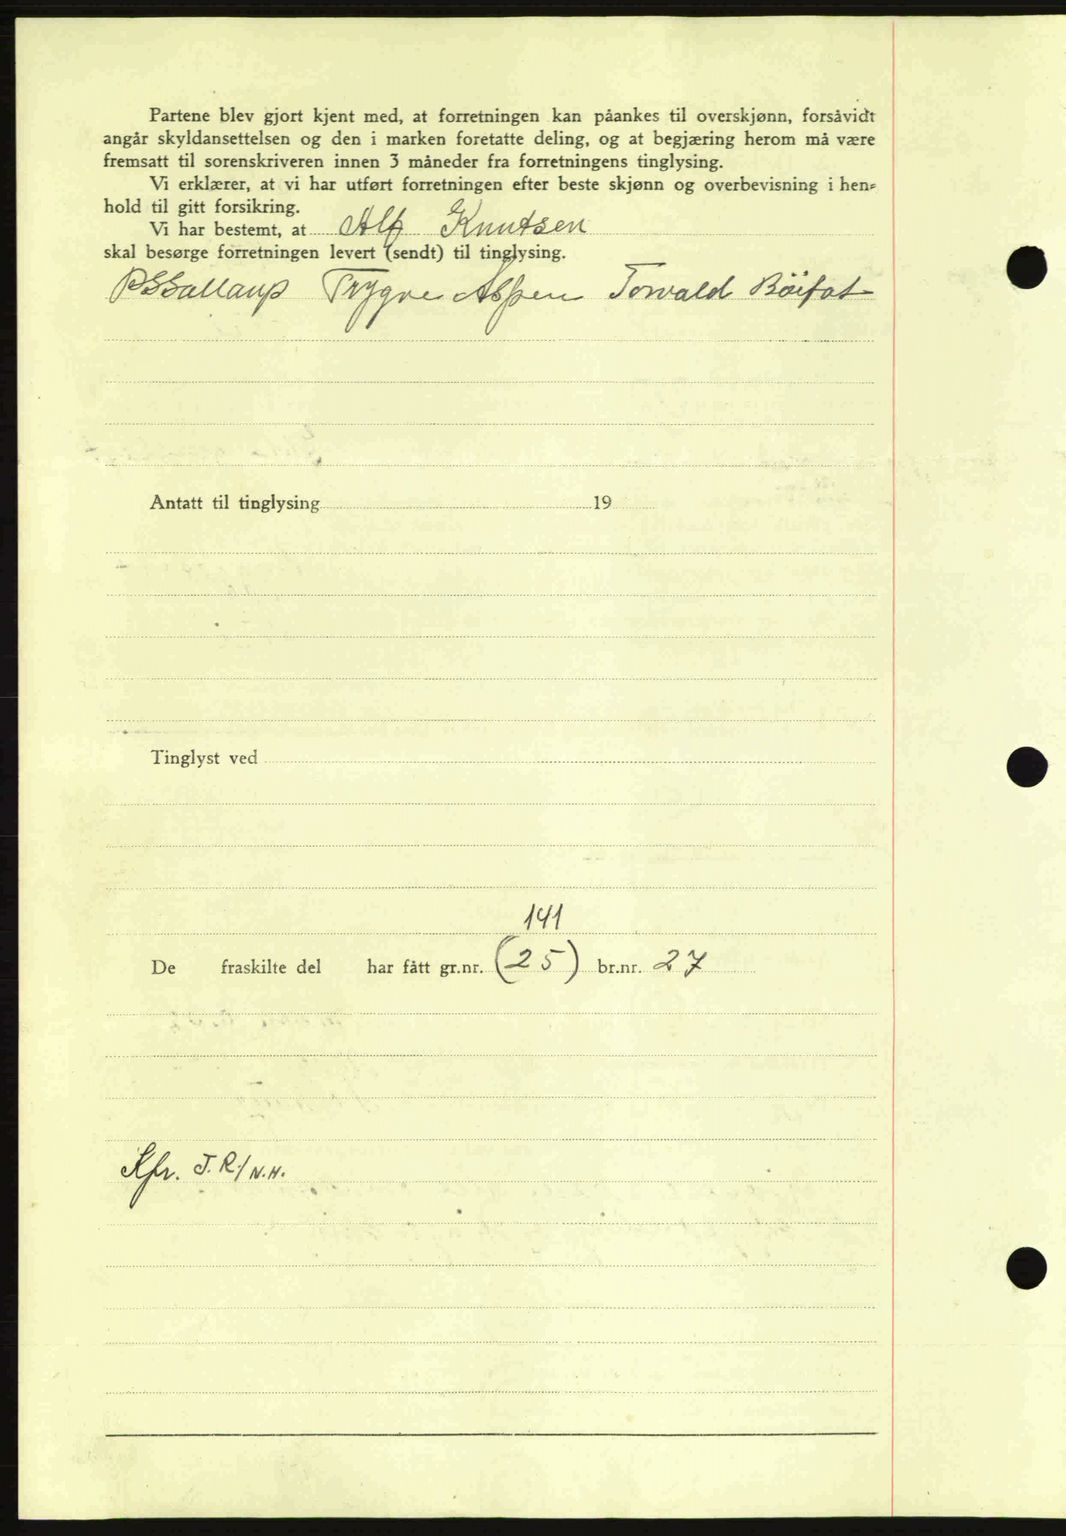 Partene blev gjort kjent med, at forretningen kan påankes til overskjønn, forsåvidt
angår skyldansettelsen og den i marken foretatte deling, og at begjæring herom må være
fremsatt til sorenskriveren innen 3 måneder fra forretningens tinglysing.
Vi erklærer, at vi har utført forretningen efter beste skjønn og overbevisning i hen-
hold til gitt forsikring.
Vi har bestemt, at Alf Knutsen
skal besørge forretningen levert (sendt) til tinglysing.
Trygve Aspen Torvald Böifot
Antatt til tinglysing 19
Tinglyst ved
141
De fraskilte del har fått gr.nr. (25) br.nr. 27
Kfr. J.R./N.H.